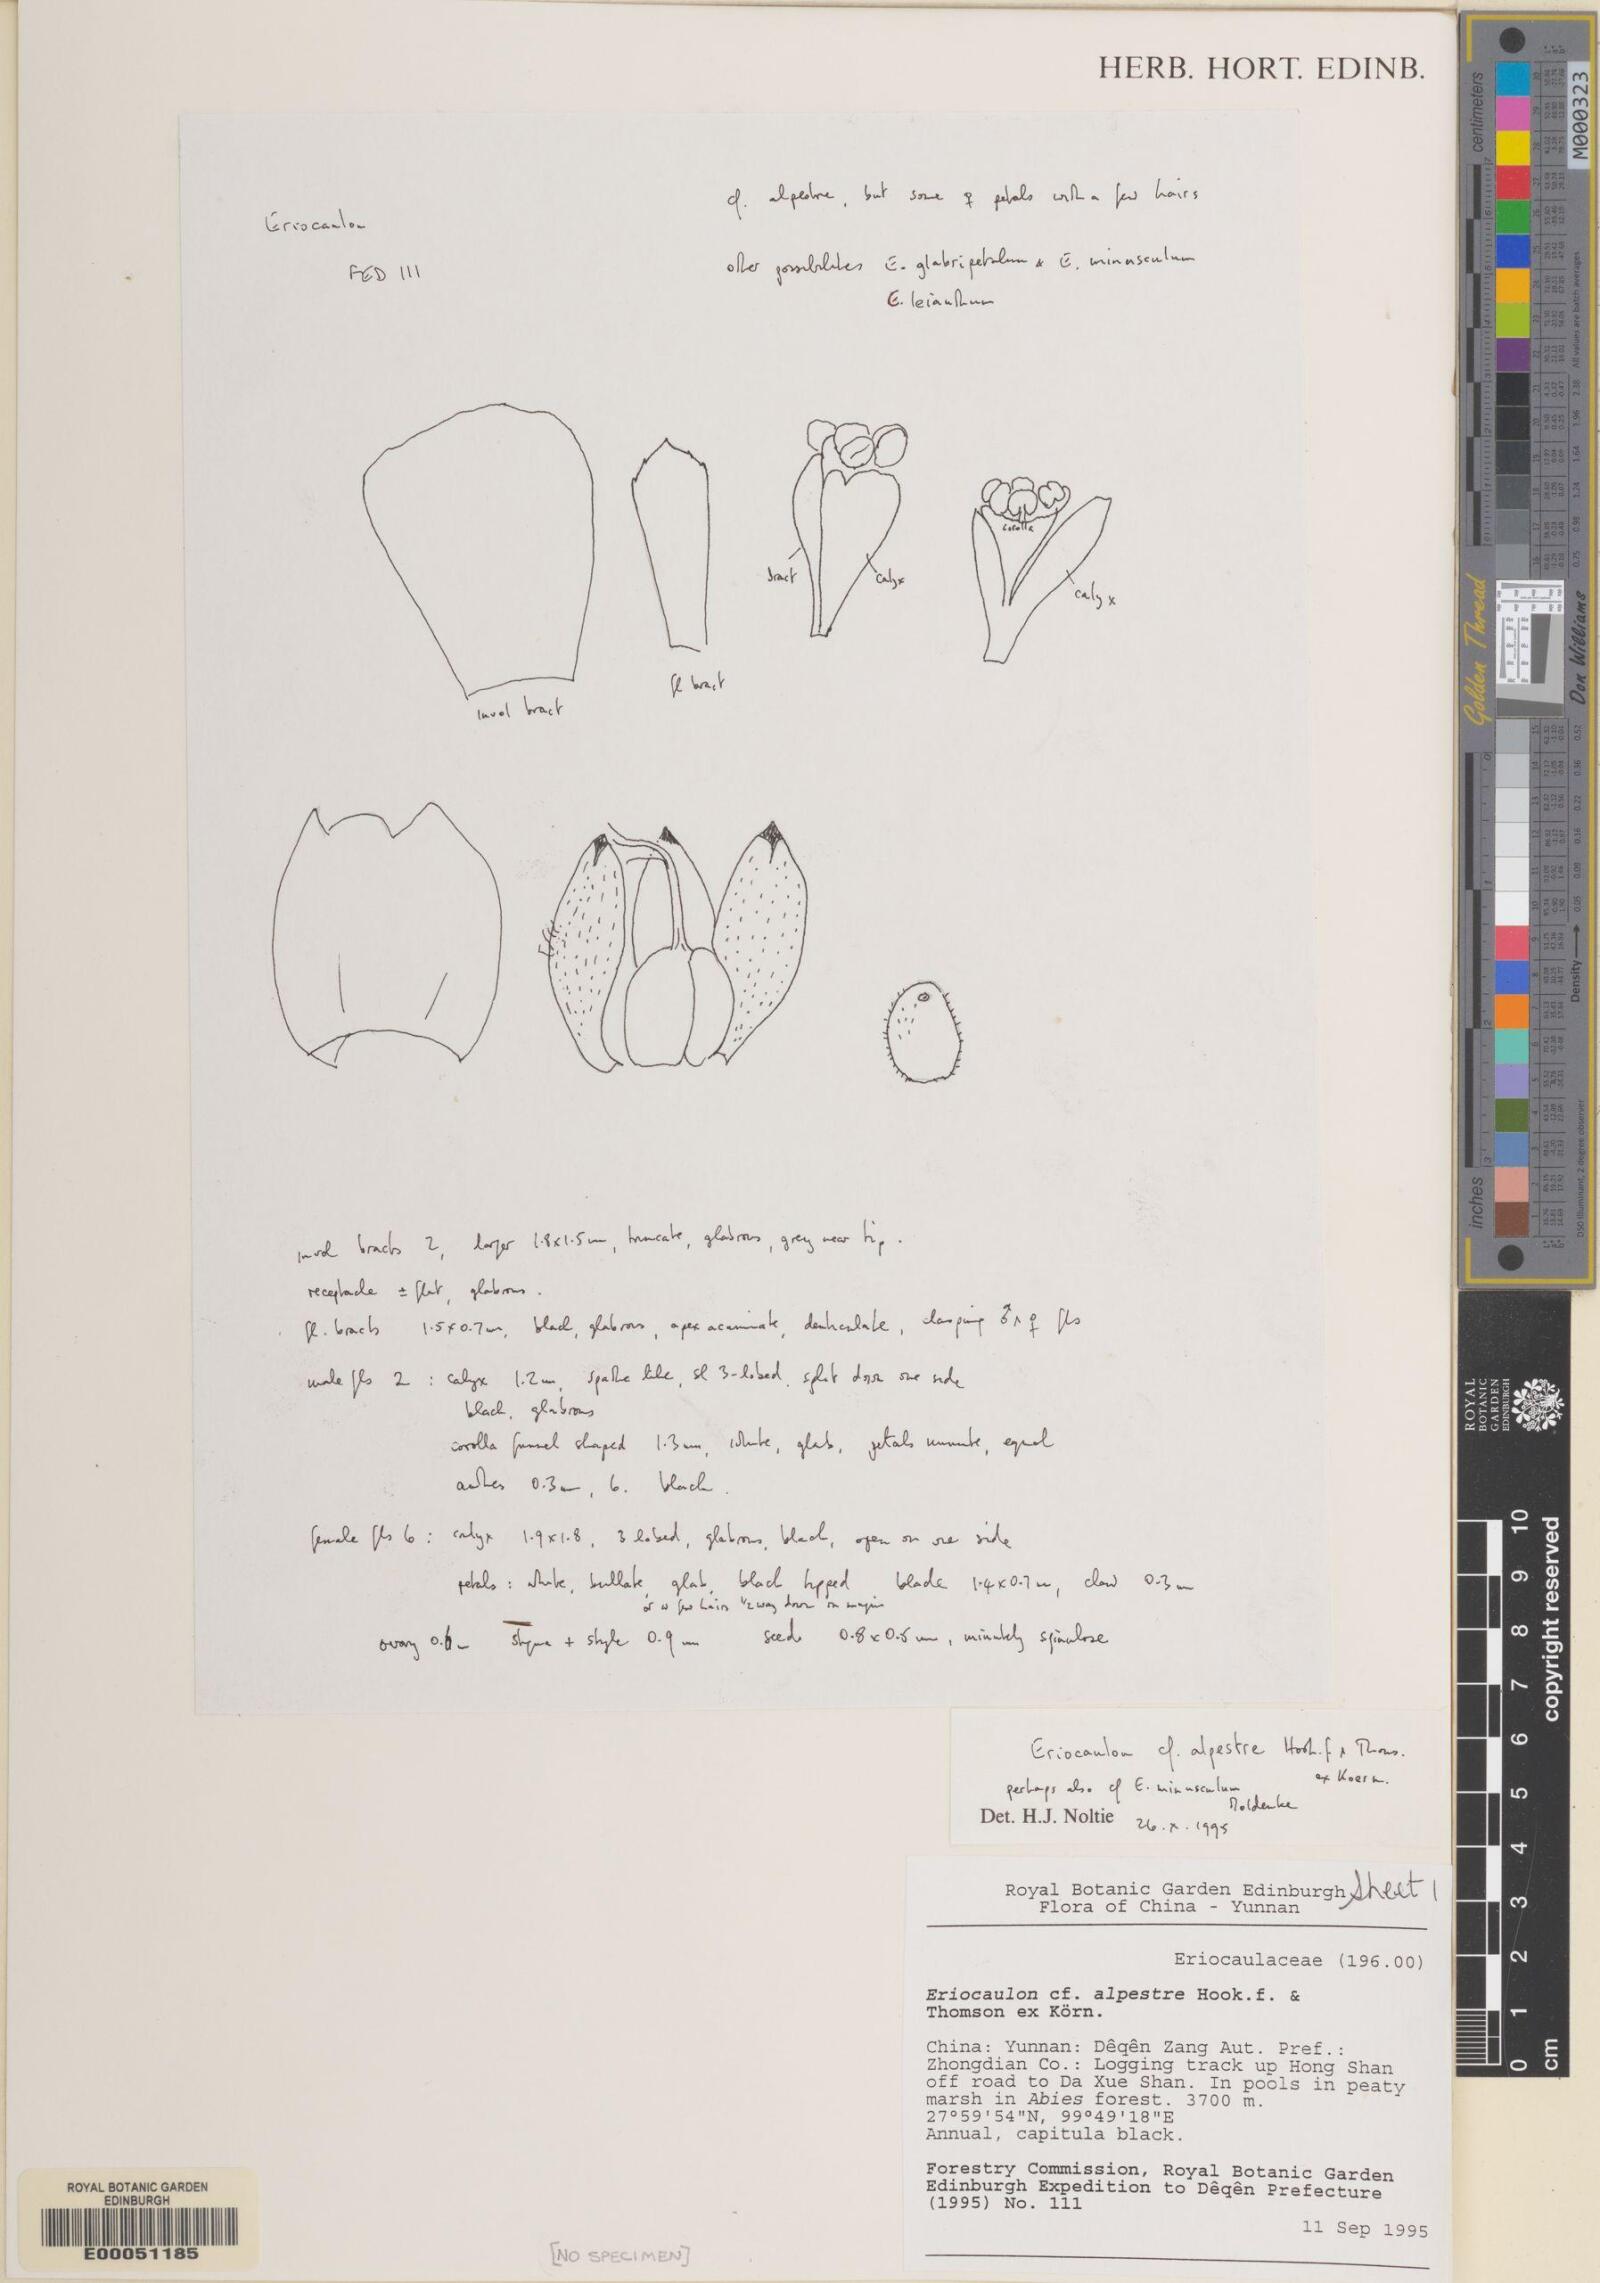 HERB. HORT. EDINB.
Eriocaulon
FED 111
cf. alpestre, but some ♀ petals with a few hairs
other possibilities E. glabripetalum & E. minusculum
E. leianthum
bract
calyx
corolla
calyx
invol bract
fl bract
invol bracts 2, larger 1.8x1.5mm, truncate, glabrous, grey near tip.
receptacle ± flat, glabrous.
fl. bracts 1.5x0.7mm, black, glabrous, apex acuminate, denticulate, clasping ♂ & ♀ fls
male fls 2 : calyx 1.2mm, spathe like, sl 3-lobed, split down one side
black, glabrous
corolla funnel shaped 1.3mm, white, glab, petals minute, equal
anthers 0.3mm, 6. black.
female fls 6 : calyx 1.9x1.8, 3 lobed, glabrous, black, open on one side
petals : white, bullate, glab, black tipped blade 1.4x0.7mm, claw 0.3mm
or w few hairs 1/2 way down on margin
ovary 0.6mm stigma + style 0.9mm seeds 0.8x0.5mm, minutely spinulose
Eriocaulon cf. alpestre Hook.f & Thoms.
ex Koern.
perhaps also cf E. minusculum
Moldenke
Det. H.J. Noltie 26.x.1995
Royal Botanic Garden Edinburgh Sheet 1
Flora of China - Yunnan
Eriocaulaceae (196.00)
Eriocaulon cf. alpestre Hook.f. &
Thomson ex Körn.
China: Yunnan: Dêqên Zang Aut. Pref.:
Zhongdian Co.: Logging track up Hong Shan
off road to Da Xue Shan. In pools in peaty
marsh in Abies forest. 3700 m.
27°59'54"N, 99°49'18"E
Annual, capitula black.
Forestry Commission, Royal Botanic Garden
Edinburgh Expedition to Dêqên Prefecture
(1995) No. 111
11 Sep 1995
ROYAL BOTANIC GARDEN
EDINBURGH
E00051185
[NO SPECIMEN]
centimeters
M000323
All values are batch averages
Golden Thread
Don Williams
Density
inches
D50 Illuminant, 2 degree observer
ROYAL
BOTANIC
GARDEN
EDINBURGH
copyright reserved
0 1 2 3 4 5 6 7 8 9 10
cm